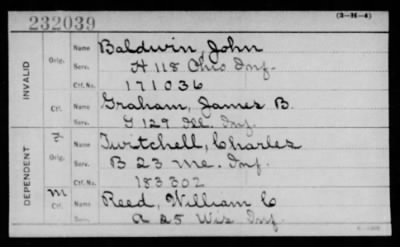 232039
(3-H-4)
INVALID
Orig.
Name Baldwin, John
Serv. H 118 Ohio Inf.
Ctf. No. 171036
Ctf.
Name Graham, James B.
Serv. G 129 Ill. Inf.
DEPENDENT
Orig.
Name Twitchell, Charles
Serv. B 23 Me. Inf.
Ctf. No. 183302
m
Ctf.
Name Reed, William C
Serv. A 25 Wis Inf.